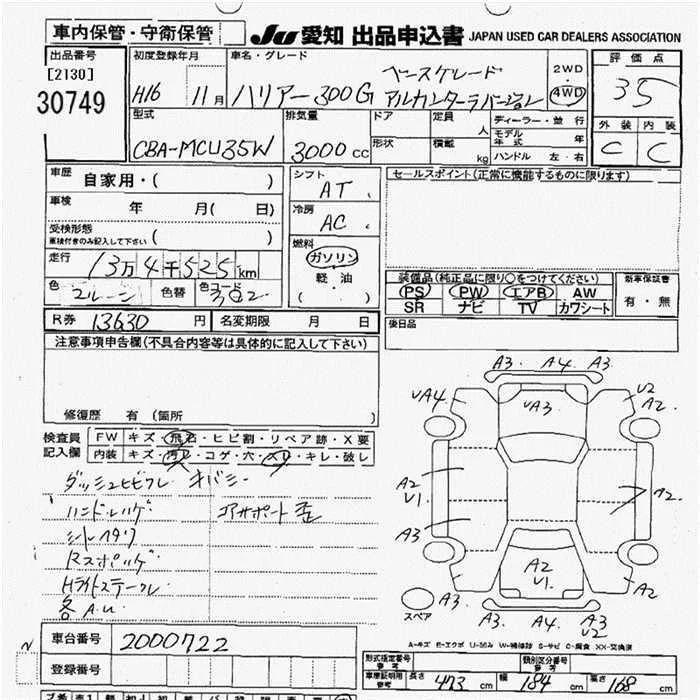 車内保管・守衛保管
JU 愛知 出品申込書 JAPAN USED CAR DEALERS ASSOCIATION
出品番号
[2130]
30749
初度登録年月
H16 11月
車名・グレード
ハリアー 300G
アルカンターラバージョン
2WD
・
4WD
評価点
3.5
外装 内装
C C
型式
CBA-MCU35W
排気量
3000cc
ドア
形状
定員 人
積載 kg
ディーラー・並行
モデル年式 年
ハンドル 左・右
車歴
自家用・( )
車検 年 月( 日)
受検形態
車検付きのみ記入して下さい ( )
走行 13万4千525km
色
色替
色コード 3Q2
シフト
AT
冷房
AC
燃料
ガソリン
軽油
( ・ )
セールスポイント(正常に機能するものに限ります)
装備品(純正品に限り○をつけてください)
PS PW エアB AW
SR ナビ TV カワシート
新車保証書
有・無
後日品
R券 13630円 名変期限 月 日
注意事項申告欄(不具合内容等は具体的に記入して下さい)
修復歴 有(箇所 )
検査員
記入欄
FW キズ・飛石・ヒビ割・リペア跡・X要
内装 キズ・汚レ・コゲ・穴・スリ・キレ・破レ
ハンドルハゲ
コアサポート歪
Hライトステークレ
各A.U
A3. A4. A3
UA4 UA3 U2
A2.
A2
U1.
A2.
A3
A2
U1.
A2
スペア A3. A3. A4. A3
U2
A-キズ E-エクボ U-凹み W-補修跡 S-サビ C-腐食 XX-交換済
車台番号 2000722
登録番号
形式指定番号
参考
類別区分番号
参考
車庫証明用
参考
長さ 473cm 幅 184cm 高さ 168cm